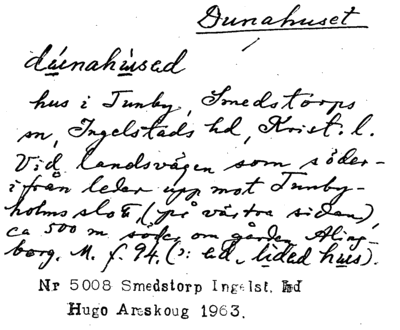 Dunahuset
dúnahúsad
hus i Tunby, Smedstorps
sn, Ingelstads hd, Krist. l.
Vid landsvägen som söder-
ifrån leder upp mot Tunby-
holms slott, (på västra sidan),
ca 500 m söder om gården Aling-
borg. M. f. 94. (ɔ: ed lided hus).
Nr 5008 Smedstorp Ingelst. hd
Hugo Areskoug 1963.